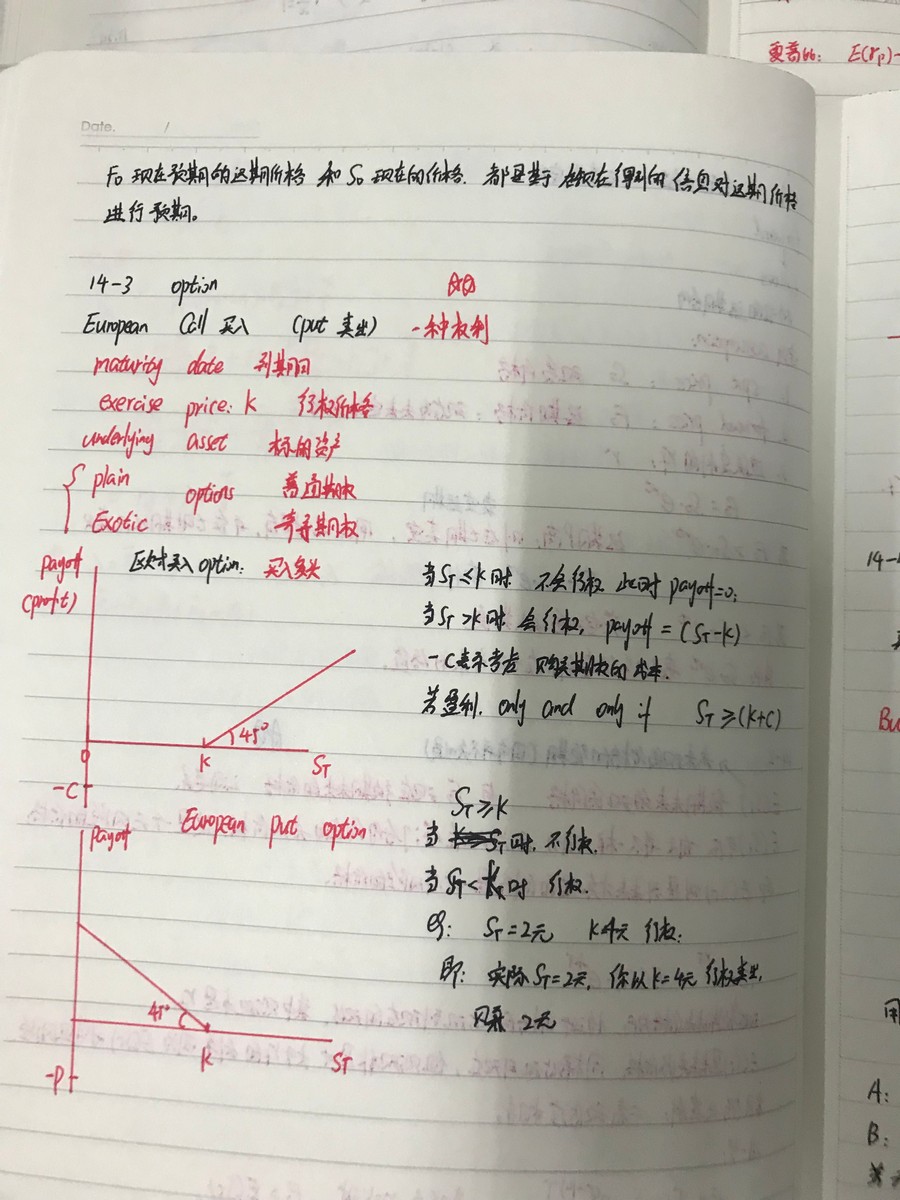 更高的: E(rp)-
Date. /
F0 现在预期的远期价格 和 S0 现在的价格. 都是基于 在现在得到的 信息对远期价格
进行预期。
14-3 option
European Call 买入 (put 卖出) 一种权利
maturity date 到期日
exercise price: K 行权价格
underlying asset 标的资产
plain options 普通期权
Exotic 奇异期权
payoff
(profit)
欧式买入option: 买入多头
当ST≤K时 不会行权 此时 payoff=0;
当ST>K时 会行权, payoff = (ST-K)
-C表示考虑 购买期权的成本.
若盈利. only and only if ST≥(K+C)
45°
0 K ST
-C
payoff European put option
ST≥K
当 时, 不行权.
当 ST<K时 行权.
eg: ST=2元 K=4元 行权:
即: 实际ST=2元, 你以K=4元 行权卖出,
净赚 2元
45°
K ST
-P
14-
Bu
用
A:
B: